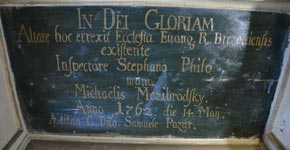 IN DEI GLORIAM
Altare hoc erexit Ecclesia Evang. R. Brezoviensis
existente
Inspectore Stephano Philo
manu
Michaelis Mezibrodsky.
Anno 1762. die 14. Maij.
Ædituo G. Dno. Samuele Pazar.